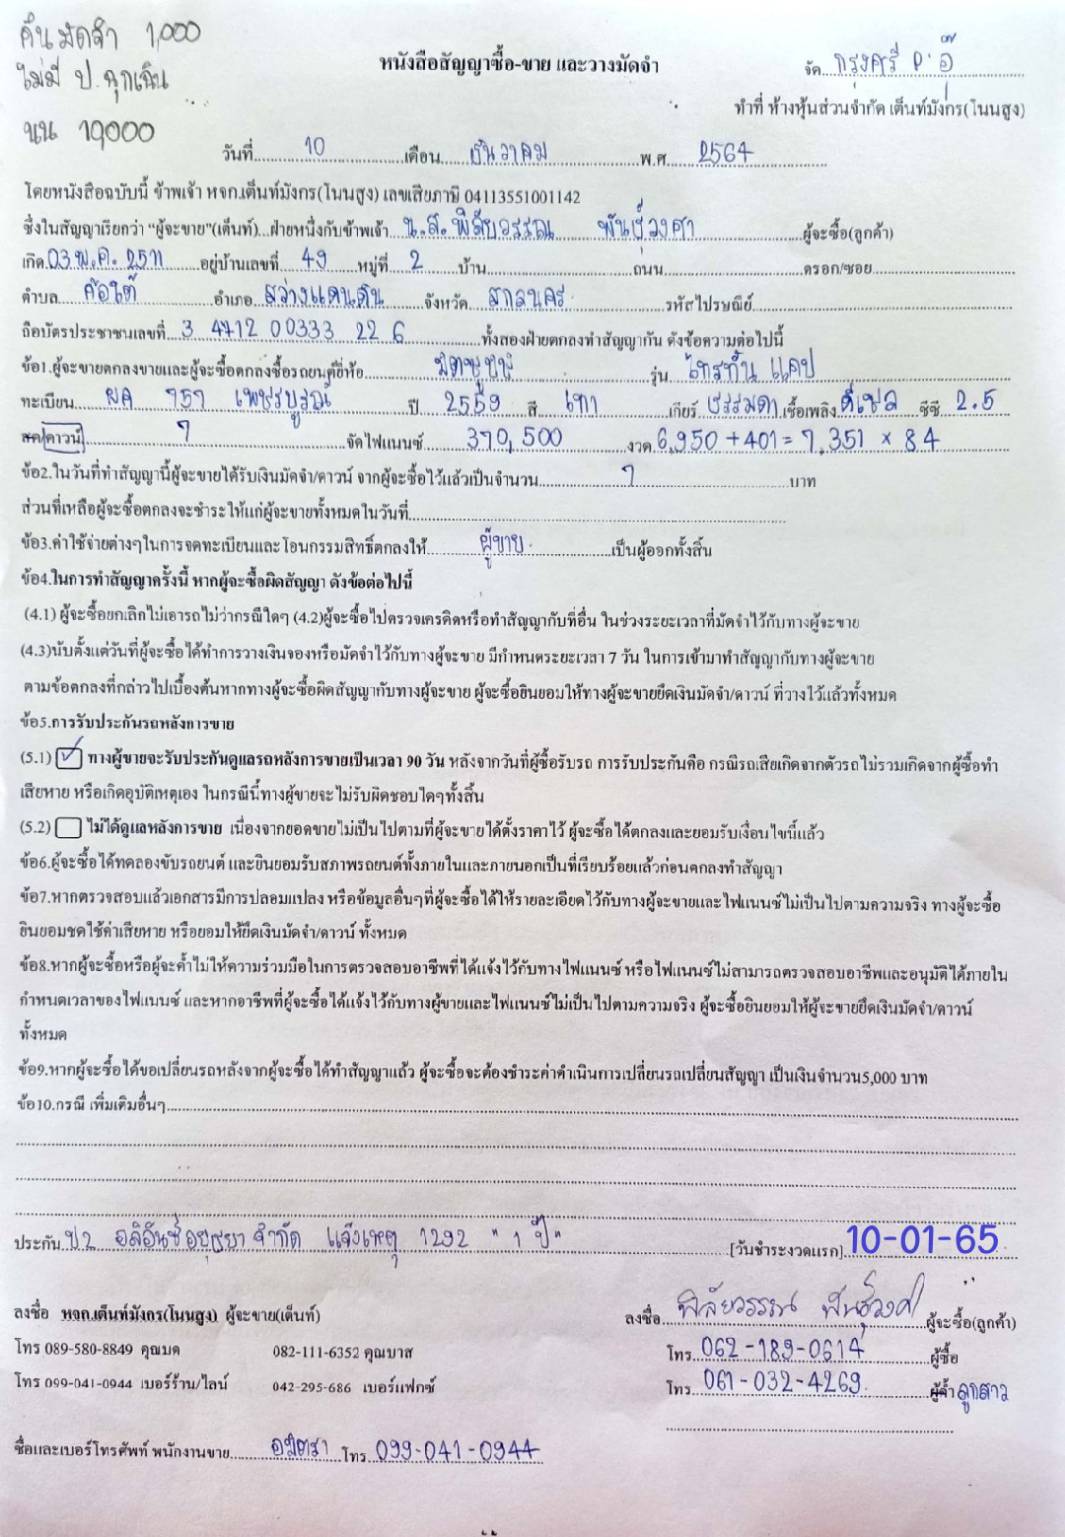 คืนมัดจำ 1,000
ไม่มี ป.ฉุกเฉิน
แนน 19,000
หนังสือสัญญาซื้อ-ขาย และวางมัดจำ
จัด กรุงศรี
ทำที่ ห้างหุ้นส่วนจำกัด เต็นท์มังกร(โนนสูง)
วันที่ 10 เดือน ธันวาคม พ.ศ. 2564
โดยหนังสือฉบับนี้ ข้าพเจ้า หจก.เต็นท์มังกร(โนนสูง) เลขเสียภาษี 04113551001142
ซึ่งในสัญญาเรียกว่า "ผู้จะขาย"(เต็นท์)...ฝ่ายหนึ่งกับข้าพเจ้า น.ส.พิลัยวรรณ พันธุ์วงศา ผู้จะซื้อ(ลูกค้า)
เกิด 03 พ.ค. 2511 อยู่บ้านเลขที่ 49 หมู่ที่ 2 บ้าน ถนน ตรอก/ซอย
ตำบล ค้อใต้ อำเภอ สว่างแดนดิน จังหวัด สกลนคร รหัสไปรษณีย์
ถือบัตรประชาชนเลขที่ 3 4712 00333 22 6 ทั้งสองฝ่ายตกลงทำสัญญากัน ดังข้อความต่อไปนี้
ข้อ1.ผู้จะขายตกลงขายและผู้จะซื้อตกลงซื้อรถยนต์ยี่ห้อ มิตซูบิชิ รุ่น ไทรทัน แคป
ทะเบียน ผค 757 เพชรบูรณ์ ปี 2559 สี เทา เกียร์ ธรรมดา เชื้อเพลิง ดีเซล ซีซี 2.5
สด/ดาวน์ 7 จัดไฟแนนซ์ 370,500 งวด 6,950 + 401 = 7,351 × 84
ข้อ2.ในวันที่ทำสัญญานี้ผู้จะขายได้รับเงินมัดจำ/ดาวน์ จากผู้จะซื้อไว้แล้วเป็นจำนวน 7 บาท
ส่วนที่เหลือผู้จะซื้อตกลงจะชำระให้แก่ผู้จะขายทั้งหมดในวันที่
ข้อ3.ค่าใช้จ่ายต่างๆในการจดทะเบียนและโอนกรรมสิทธิ์ตกลงให้ ผู้ขาย เป็นผู้ออกทั้งสิ้น
ข้อ4.ในการทำสัญญาครั้งนี้ หากผู้จะซื้อผิดสัญญา ดังข้อต่อไปนี้
(4.1) ผู้จะซื้อยกเลิกไม่เอารถไม่ว่ากรณีใดๆ (4.2)ผู้จะซื้อไปตรวจเครดิตหรือทำสัญญากับที่อื่น ในช่วงระยะเวลาที่มัดจำไว้กับทางผู้จะขาย
(4.3)นับตั้งแต่วันที่ผู้จะซื้อได้ทำการวางเงินจองหรือมัดจำไว้กับทางผู้จะขาย มีกำหนดระยะเวลา 7 วัน ในการเข้ามาทำสัญญากับทางผู้จะขาย
ตามข้อตกลงที่กล่าวไปเบื้องต้นหากทางผู้จะซื้อผิดสัญญากับทางผู้จะขาย ผู้จะซื้อยินยอมให้ทางผู้จะขายยึดเงินมัดจำ/ดาวน์ ที่วางไว้แล้วทั้งหมด
ข้อ5.การรับประกันรถหลังการขาย
(5.1) ทางผู้ขายจะรับประกันดูแลรถหลังการขายเป็นเวลา 90 วัน หลังจากวันที่ผู้ซื้อรับรถ การรับประกันคือ กรณีรถเสียเกิดจากตัวรถไม่รวมเกิดจากผู้ซื้อทำ
เสียหาย หรือเกิดอุบัติเหตุเอง ในกรณีนี้ทางผู้ขายจะไม่รับผิดชอบใดๆทั้งสิ้น
(5.2) ไม่ได้ดูแลหลังการขาย เนื่องจากยอดขายไม่เป็นไปตามที่ผู้จะขายได้ตั้งราคาไว้ ผู้จะซื้อได้ตกลงและยอมรับเงื่อนไขนี้แล้ว
ข้อ6.ผู้จะซื้อได้ทดลองขับรถยนต์ และยินยอมรับสภาพรถยนต์ทั้งภายในและภายนอกเป็นที่เรียบร้อยแล้วก่อนตกลงทำสัญญา
ข้อ7.หากตรวจสอบแล้วเอกสารมีการปลอมแปลง หรือข้อมูลอื่นๆที่ผู้จะซื้อได้ให้รายละเอียดไว้กับทางผู้จะขายและไฟแนนซ์ไม่เป็นไปตามความจริง ทางผู้จะซื้อ
ยินยอมชดใช้ค่าเสียหาย หรือยอมให้ยึดเงินมัดจำ/ดาวน์ ทั้งหมด
ข้อ8.หากผู้จะซื้อหรือผู้จะค้ำไม่ให้ความร่วมมือในการตรวจสอบอาชีพที่ได้แจ้งไว้กับทางไฟแนนซ์ หรือไฟแนนซ์ไม่สามารถตรวจสอบอาชีพและอนุมัติได้ภายใน
กำหนดเวลาของไฟแนนซ์ และหากอาชีพที่ผู้จะซื้อได้แจ้งไว้กับทางผู้ขายและไฟแนนซ์ไม่เป็นไปตามความจริง ผู้จะซื้อยินยอมให้ผู้จะขายยึดเงินมัดจำ/ดาวน์
ทั้งหมด
ข้อ9.หากผู้จะซื้อได้ขอเปลี่ยนรถหลังจากผู้จะซื้อได้ทำสัญญาแล้ว ผู้จะซื้อจะต้องชำระค่าดำเนินการเปลี่ยนรถเปลี่ยนสัญญา เป็นเงินจำนวน5,000 บาท
ข้อ10.กรณี เพิ่มเติมอื่นๆ
ประกัน ป2 อลิอันซ์อยุธยา จำกัด แจ้งเหตุ 1292 " 1 ปี " [วันชำระงวดแรก] 10-01-65
ลงชื่อ หจก.เต็นท์มังกร(โนนสูง) ผู้จะขาย(เต็นท์)
ลงชื่อ พิลัยวรรณ พันธุ์วงศา ผู้จะซื้อ(ลูกค้า)
โทร 089-580-8849 คุณมด 082-111-6352 คุณบาส
โทร 062-189-0614 ผู้ซื้อ
โทร 099-041-0944 เบอร์ร้าน/ไลน์ 042-295-686 เบอร์แฟกซ์
โทร 061-032-4269 ผู้ค้ำ ลูกสาว
ชื่อและเบอร์โทรศัพท์ พนักงานขาย อมิตรา โทร 099-041-0944